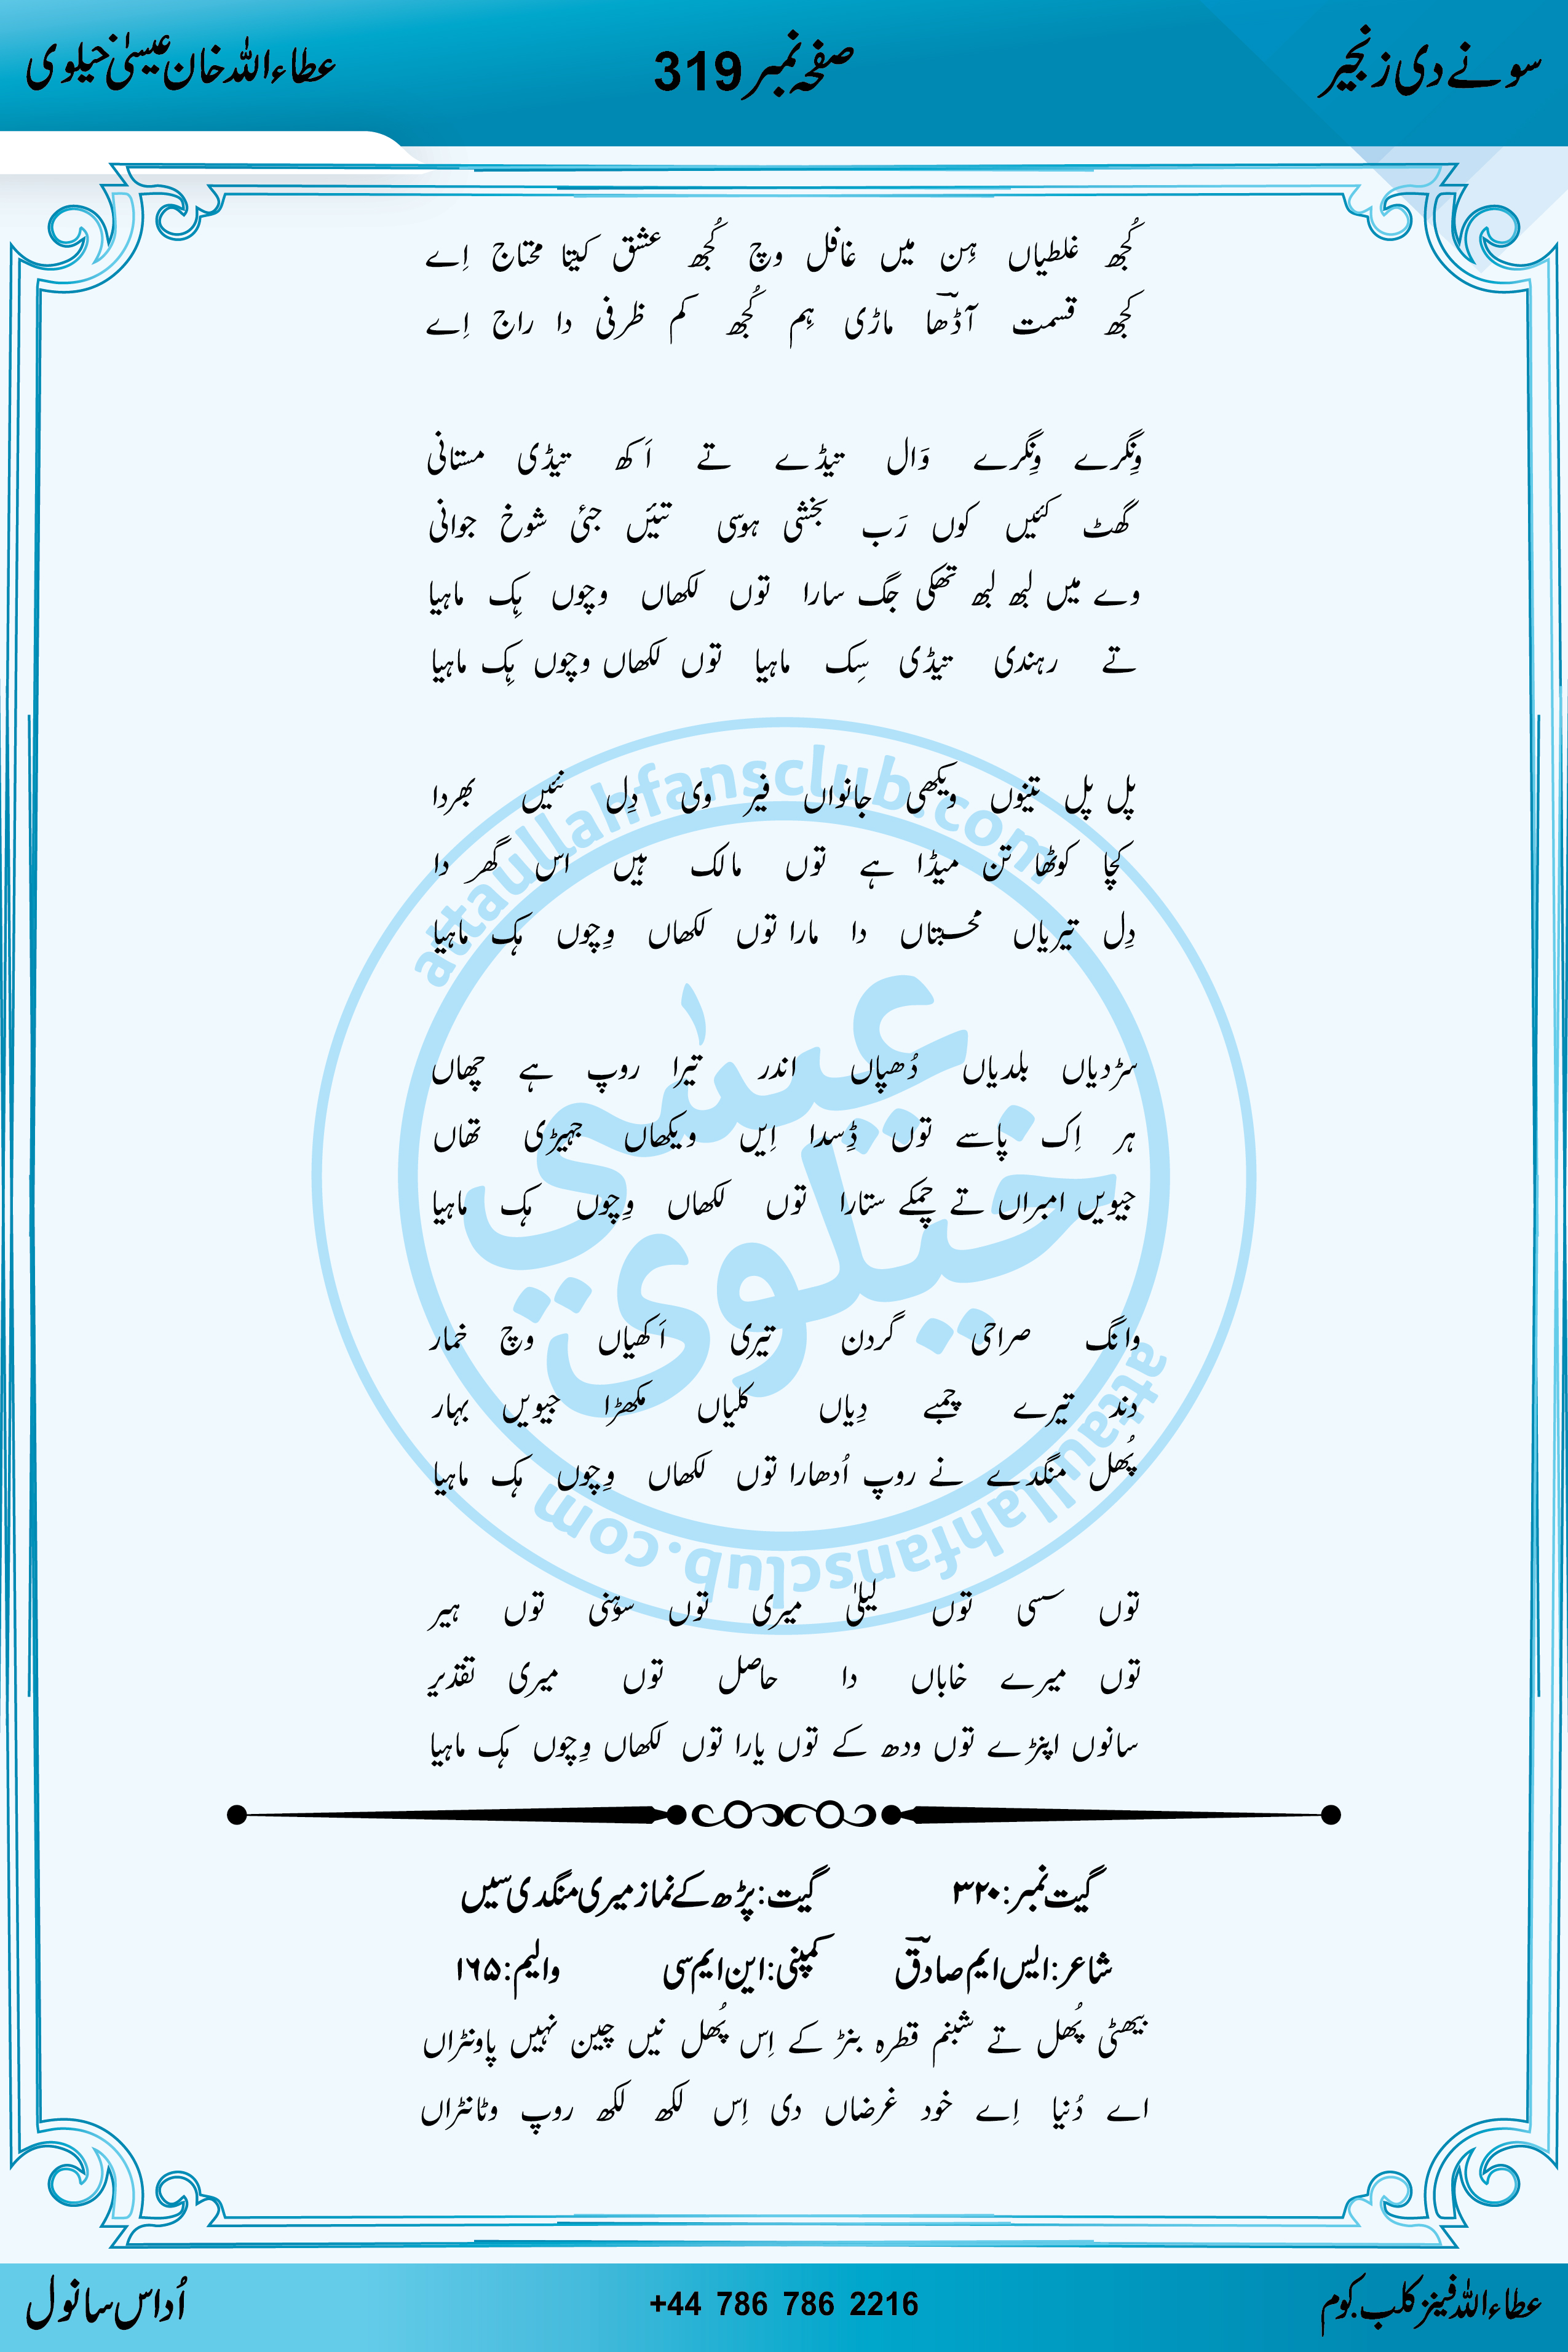 سونے دی زنجیر
صفحہ نمبر 319
عطاءاللہ خان عیسیٰ خیلوی
کُجھ غلطیاں ہِن میں غافل وچ کُجھ عشق کیتا محتاج اِے
کجھ قسمت آڈھاؔ ماڑی ہِم کُجھ کم ظرفی دا راج اِے
وِنگرے وِنگرے وَال تیڈے تے اَکھ تیڈی مستانی
گھٹ کئیں کوں رَب بخشی ہوسی تئیں جئی شوخ جوانی
وے میں لبھ لبھ تھکی جگ سارا توں لکھاں وچوں ہِک ماہیا
تے رہندی تیڈی سِک ماہیا توں لکھاں وچوں ہِک ماہیا
پل پل تینوں ویکھی جانواں فیر وی دِل نئیں بھردا
کچا کوٹھا تن میڈا ہے توں مالک ہیں اس گھر دا
دِل تیریاں محبتاں دا مارا توں لکھاں وِچوں ہک ماہیا
سڑدیاں بلدیاں دُھپاں اندر تیرا روپ ہے چھاں
ہر اِک پاسے توں ڈِسدا اِیں ویکھاں جہیڑی تھاں
جیویں امبراں تے چمکے ستارا توں لکھاں وِچوں ہک ماہیا
وانگ صراحی گردن تیری اَکھیاں وچ خمار
دند تیرے چمبے دِیاں کلیاں مکھڑا جیویں بہار
پُھل منگدے نے روپ اُدھارا توں لکھاں وِچوں ہک ماہیا
توں سسی توں لیلیٰ میری توں سوہنی توں ہیر
توں میرے خاباں دا حاصل توں میری تقدیر
سانوں اپنڑے توں ودھ کے توں یارا توں لکھاں وِچوں ہک ماہیا
گیت نمبر: ۳۲۰ گیت: پڑھ کے نماز میری منگدی سیں
شاعر: ایس ایم صادقؔ کمپنی: این ایم سی والیم: ۱۶۵
بیھٹی پُھل تے شبنم قطرہ بنڑ کے اِس پُھل نیں چین نہیں پاونڑاں
اے دُنیا اِے خود غرضاں دی اِس لکھ لکھ روپ وٹانڑاں
attaullahfansclub.com
عیسیٰ
خیلوی
attaullahfansclub.com
عطاءاللہ فینز کلب.کوم
+44 786 786 2216
اُداس سانول